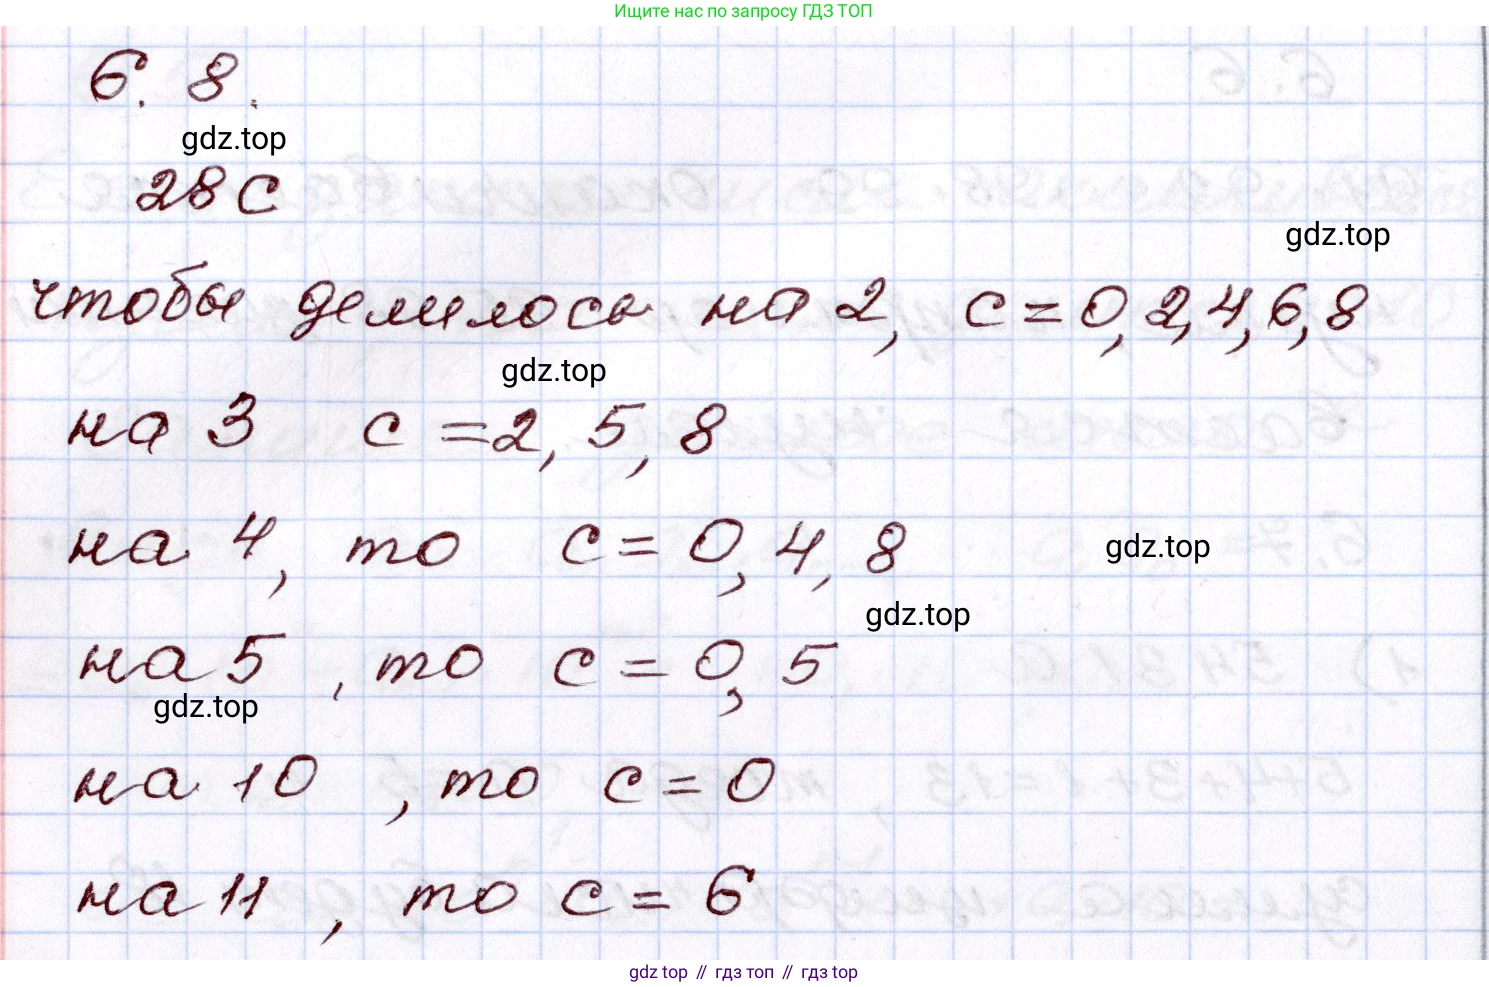 Ищите нас по запросу ГДЗ ТОП
6. 8.
gdz.top
28с
gdz.top
чтобы делилось на 2, с = 0, 2, 4, 6, 8
gdz.top
на 3 с = 2, 5, 8
на 4, то с = 0, 4, 8
gdz.top
gdz.top
на 5, то с = 0, 5
gdz.top
на 10, то с = 0
на 11, то с = 6
gdz top // гдз топ // gdz top